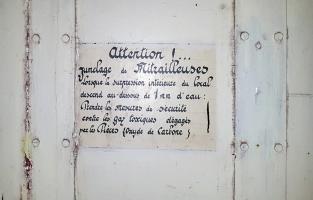 Attention !...
jumelage de Mitrailleuses
lorsque la surpression intérieure du local
descend au dessous de 1 mn d'eau :
Prendre les mesures de sécurité
contre les gaz toxiques dégagés
par les Pièces (Oxyde de Carbone).